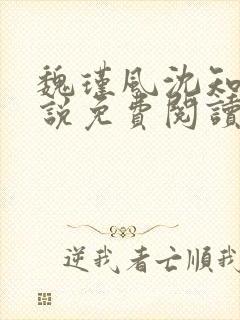 魏瑾風沈知
說免費閱讀
逆我者亡順我